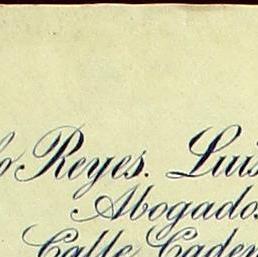 o Reyes. Luis
Abogados
Calle Caden